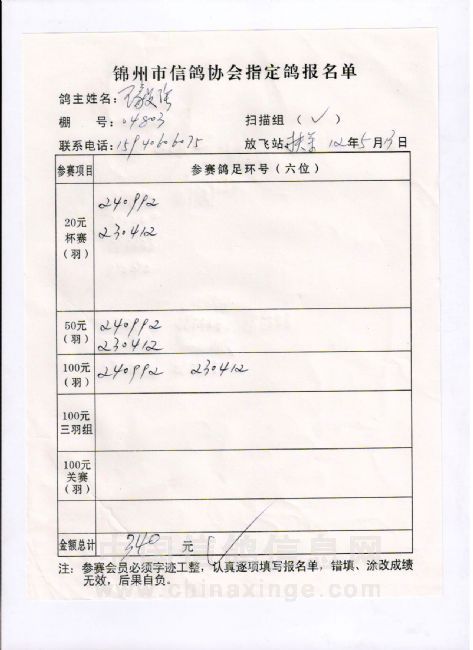 锦州市信鸽协会指定鸽报名单
鸽主姓名：
棚 号：04803 扫描组（✓）
联系电话： 放飞站： 12年5月13日
参赛项目 参赛鸽足环号（六位）
20元 杯赛 （羽） 240992
230412
50元 （羽） 240992
230412
100元 （羽） 240992 230412
100元 三羽组
100元 关赛 （羽）
金额总计 340 元
注：参赛会员必须字迹工整，认真逐项填写报名单，错填、涂改成绩
无效，后果自负。
中国信鸽信息网
www.chinaxinge.com